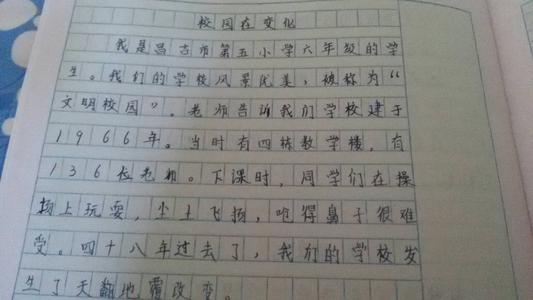 校园在变化
我是昌吉市第五小学六年级的学
生。我们的学校风景优美，被称为“
文明校园”。老师告诉我们学校建于
1966年。当时有四栋教学楼，有
136位老师。下课时，同学们在操
场上玩耍，尘土飞扬，呛得鼻子很难
受。四十八年过去了，我们的学校发
生了天翻地覆改变。